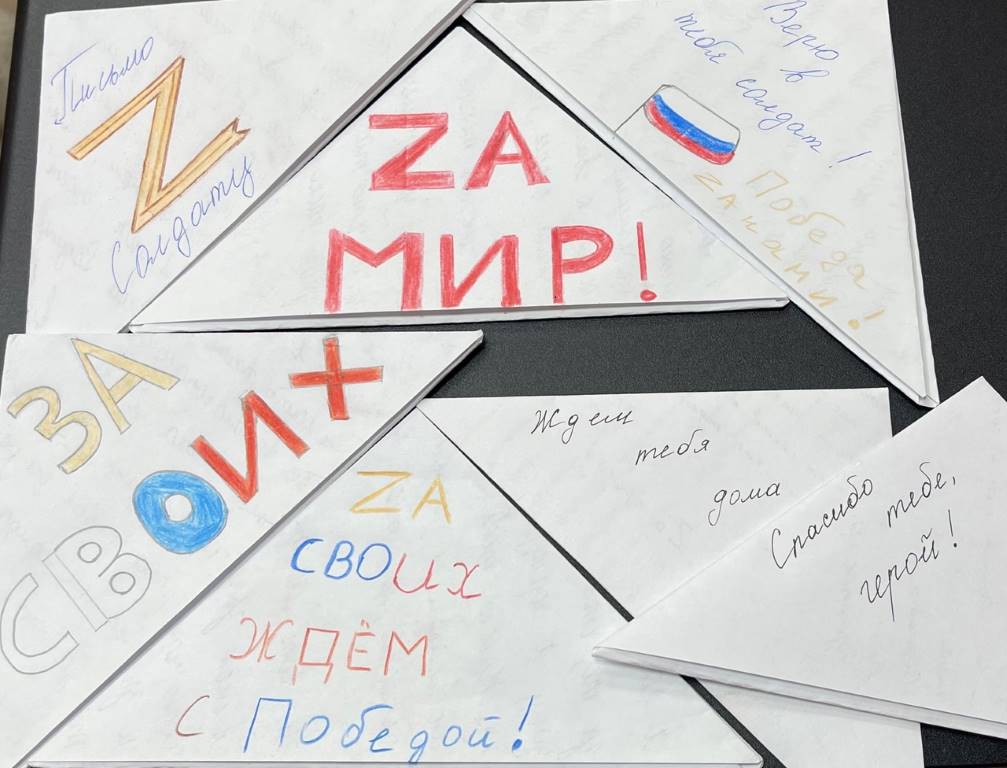 Письмо
Z
Солдату
ZА
МИР!
Верю
в
тебя солдат!
Победа
ZА НАМИ!
ЗА
СВОИХ
ZА
СВОИХ
ЖДЁМ
С Победой!
Ждем
тебя
дома
Спасибо
тебе,
герой!